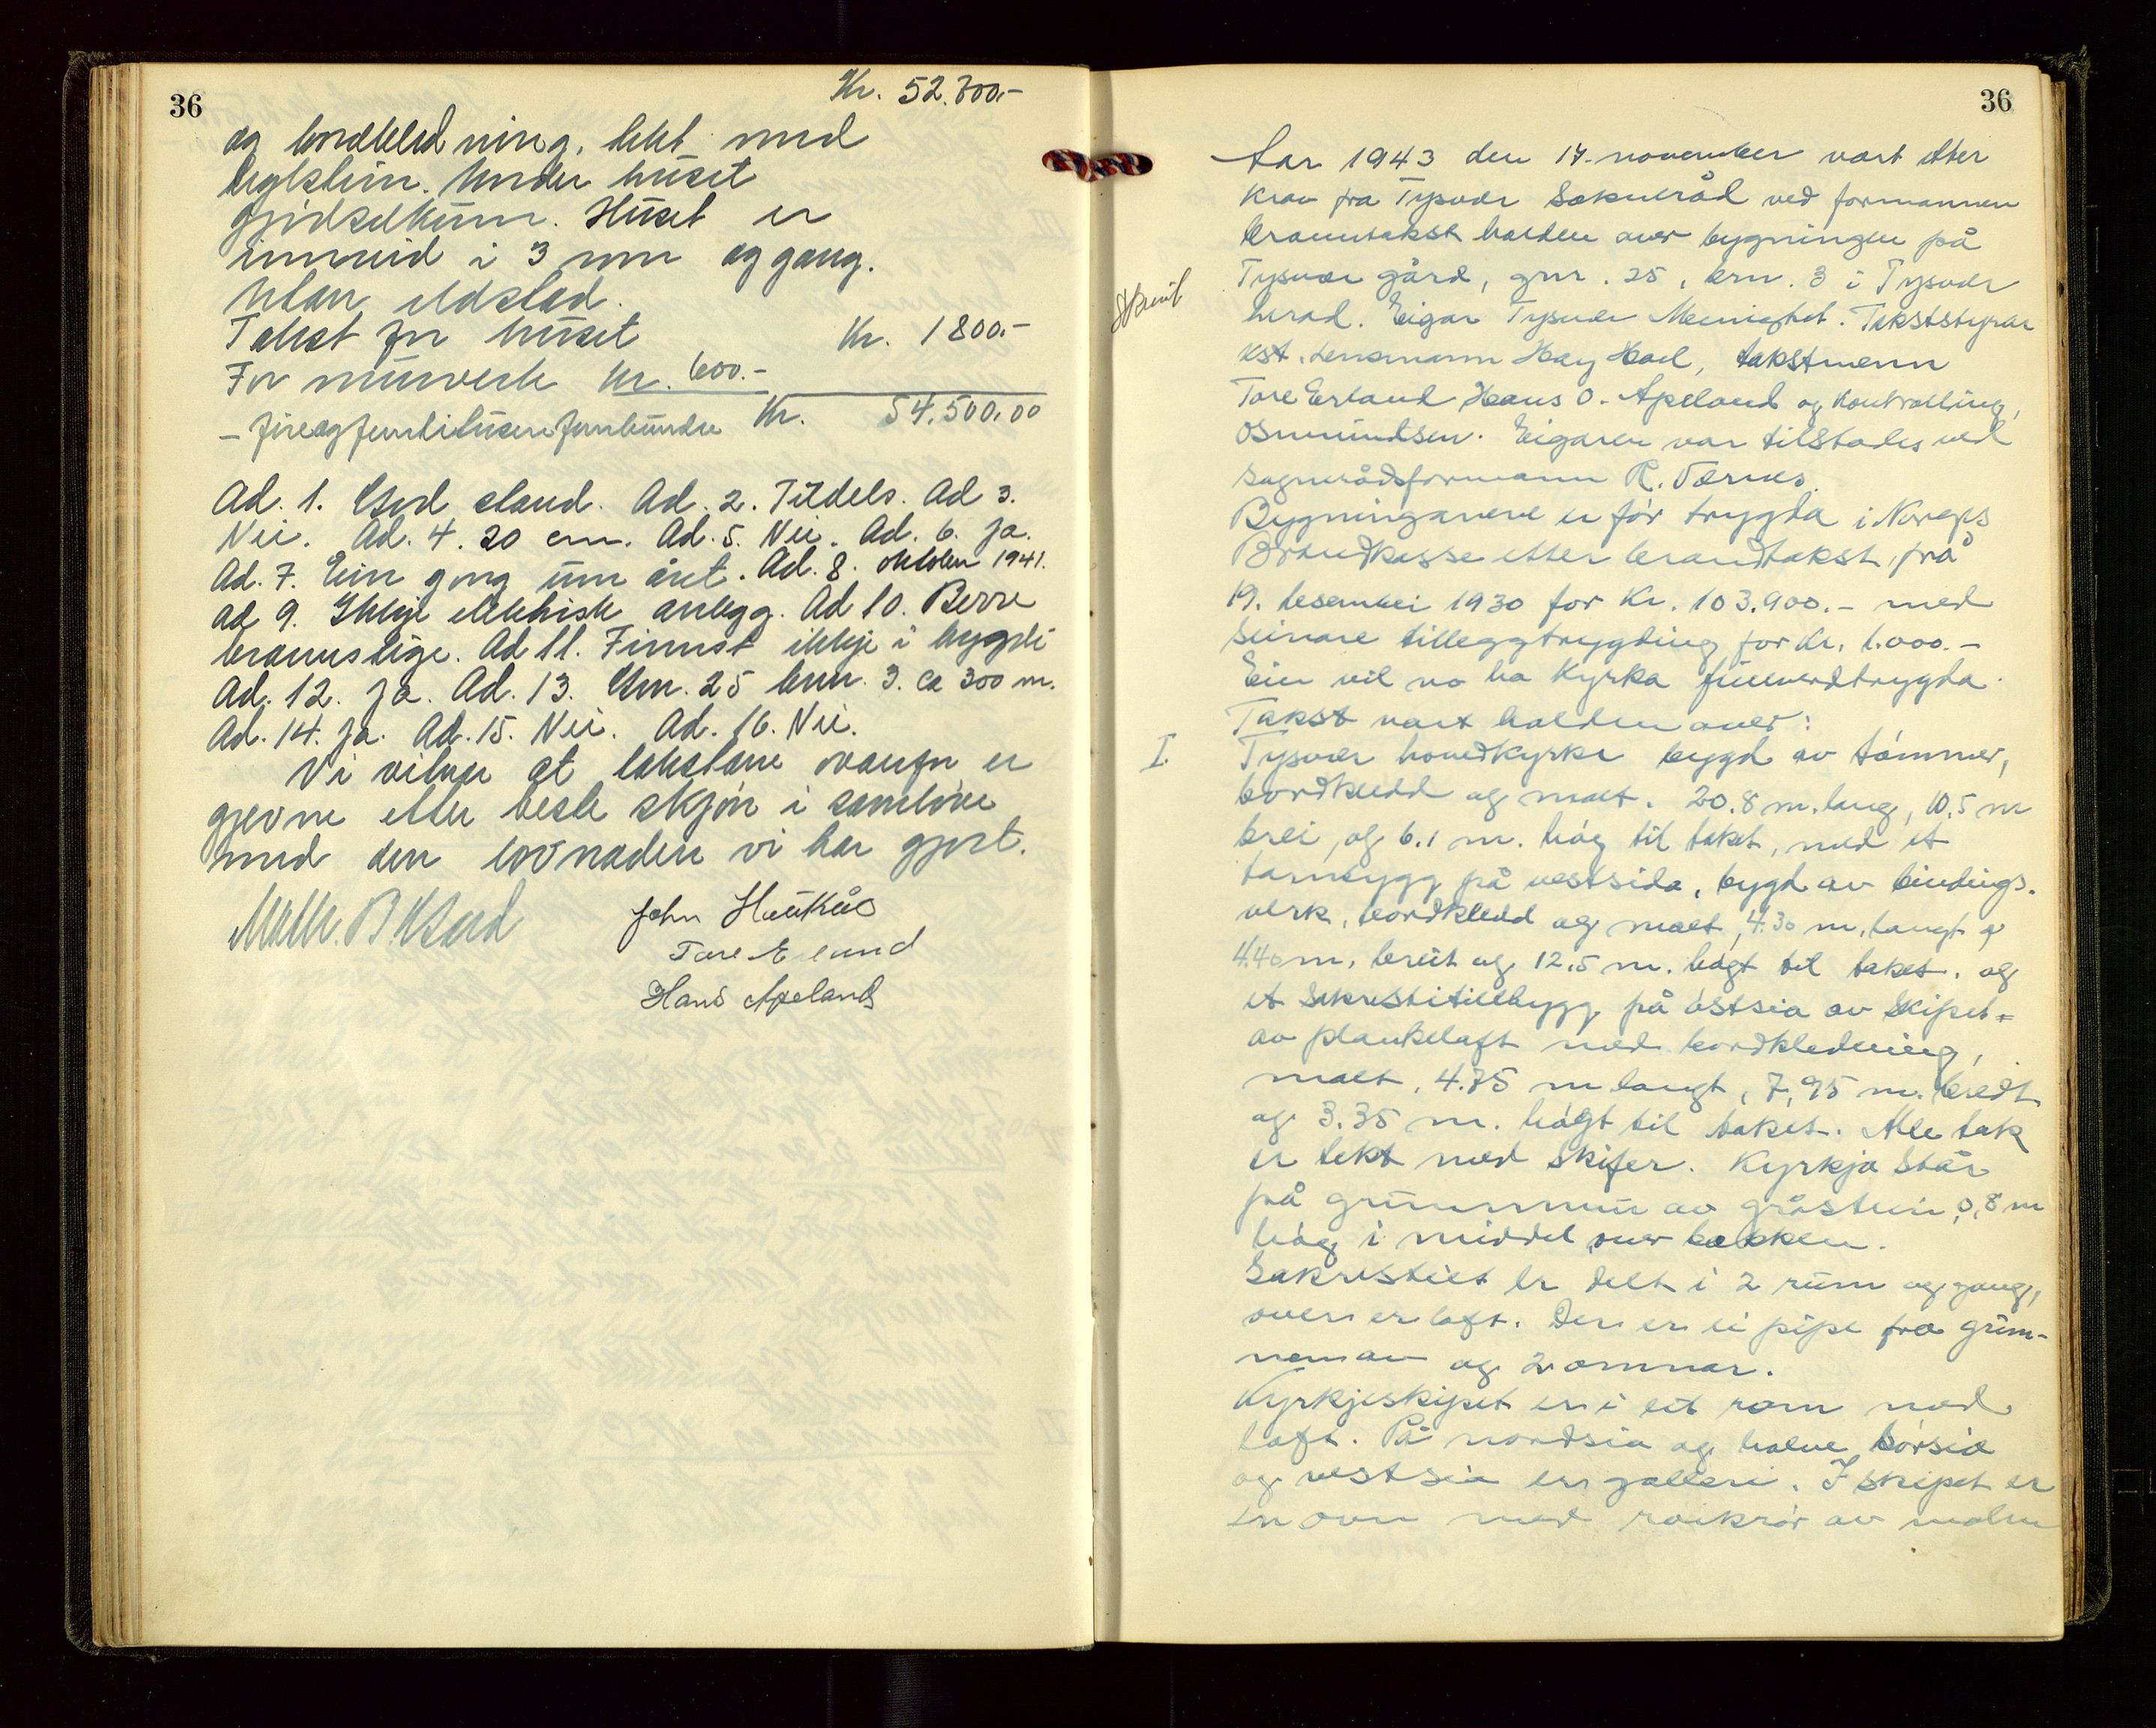 36
Kr. 52.700.-
og bordkledning, tekt med
teglstein. Under huset
gjødselkum. Huset er
innreid i 3 rum og gang.
Utan eldstad.
Takst for huset Kr. 1800.-
For murverk kr. 600.-
Kr. 54.500,00
- fireogfemtitusenfemhundre
Ad. 1. God stand. Ad. 2. Tildels. Ad 3.
Nei. Ad. 4. 20 cm. Ad. 5. Nei. Ad. 6. Ja.
Ad. 7. Ein gong um året. Ad. 8. oktober 1941.
Ad 9. Ikkje elektrisk anlegg. Ad 10. Berre
brannstige. Ad 11. Finnst ikkje i bygdi
Ad. 12. Ja. Ad. 13. Gnr. 25 bnr. 3. ca 300 m.
Ad. 14. Ja. Ad. 15. Nei. Ad. 16. Nei.
Vi vitnar at takstane ovanfor er
gjevne etter beste skjøn i samhøve
med den lovnaden vi har gjort.
John Haukås
Tore Erland
Hans Apeland
36
Aar 1943 den 17. november vart etter
krav fra Tysvær Sokneråd ved formannen
branntakst halden over bygningen på
Tysvær gård, gnr. 25, brn. 3 i Tysvær
herad. Eigar Tysvær Menighet. Takststyrar
kst. Lensmann Hay Hoel, takstmenn
Tore Erland Hans O. Apeland og kontrolling.
Osmundsen. Eigaren var tilstades ved
sognerådsformann R. Værnes.
Bygningarene er før trygda i Noregs
Brandkasse etter brandtakst frå
19. desember 1930 for Kr. 103.900.- med
seinare tilleggtrygding for kr. 1.000.-
Ein vil no ha Kyrka fullverdtrygda.
Takst vart halden over:
I Tysvær hovedkyrke bygd av tømmer,
bordkledd og malt. 20.8 m. lang, 10,5 m
brei, og 6.1 m. høg til taket, med et
tarnbygg på vestsida, bygd av bindings-
verk, bordkledd og malt, 4.30 m. langt og
4.40 m. breit og 12.5 m. høgt til taket. og
et Sakristitilbygg på østsia av Skipet-
av plankelaft med bordkledning,
malt, 4.75 m langt, 7,95 m. bredt
og 3.35 m. høgt til taket. Alle tak
er tekt med Skifer. Kyrkja står
på grunnmur av gråstein 0,8 m
høg i middel over bakken.
Sakristiet er delt i 2 rum og gang,
over er loft. Der er ei pipe fra grun-
nen av og 2 omnar.
Kyrkjeskipet er i eit rom med
loft. På nordsia og halve sørsia
og vestsia er galleri. I skipet er
en ovn med røikrør av malm